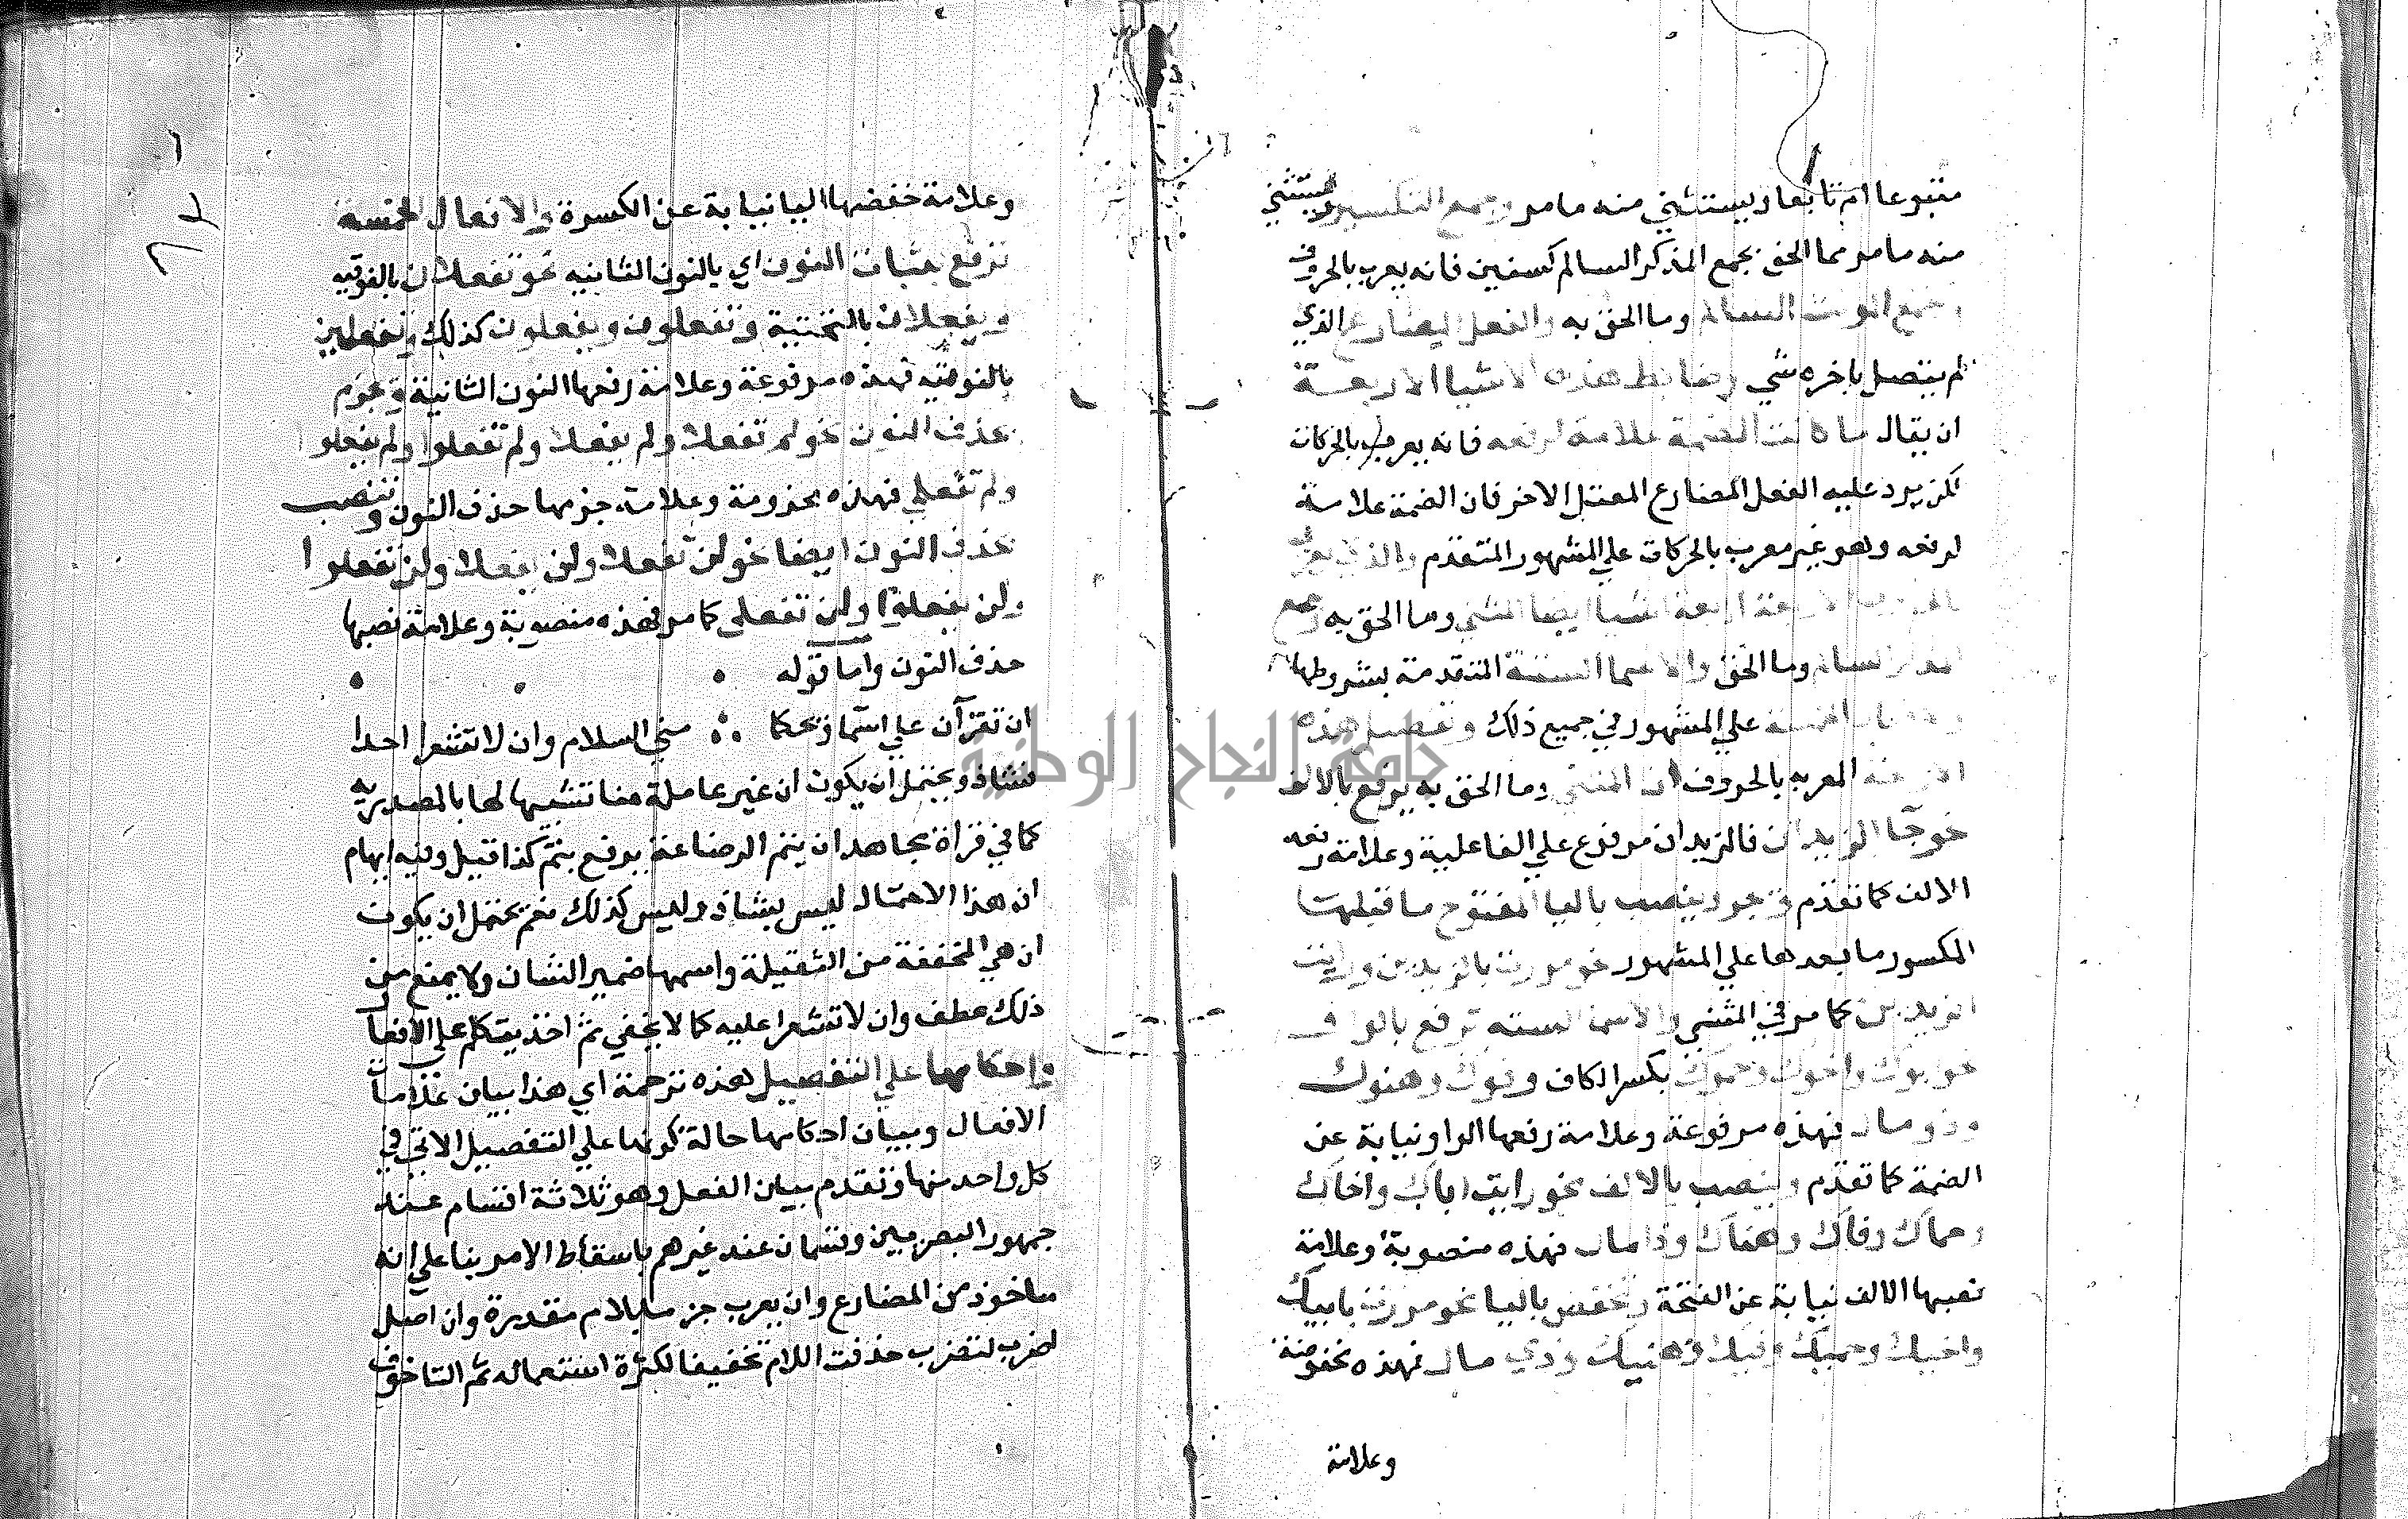 متبوعا ام تابعا ويستثني منه ما مر وجمع التكسير ويستثني
منه ما مر مما الحق بجمع المذكر السالم كسنين فانه يعرب بالحروف
وجمع المونث السالم وما الحق به والفعل المضارع الذي
لم يتصل باخره شي وضابط هذه الاشيا الاربعة
ان يقال ما كانت الضمة علامة لرفعه فانه يعرب بالحركات
لكن يرد عليه الفعل المضارع المعتل الاخر فان الضمة علامة
لرفعه وهو غير معرب بالحركات علي المشهور المتقدم والذي يعرب
بالحروف اربعة اشيا ايضا المثني وما الحق به وجمع
المذكر السالم وما الحق والاسما الستة المتقدمة بشروطها
الخمسة علي المشهور في جميع ذلك وتفصيل هذه
المعربه بالحروف ان المثني وما الحق به يرفع بالالف
نحو جآ الزيدان فالزيدان مرفوع علي الفاعلية وعلامة رفعه
الالف كما تقدم وجر وينصب باليا المفتوح ما قبلها
المكسور ما بعدها علي المشهور نحو مررت بالزيدين ورايت
الزيدين كما مر في المثني والاسما السته ترفع بالواو
نحو ابوك واخوك وحموك بكسر الكاف وفوك وهنوك
وذو مال فهذه مرفوعة وعلامة رفعها الواو نيابة عن
الضمة كما تقدم وينصب بالالف نحو رايت اباك واخاك
وحماك وفاك وهناك وذا مال فهذه منصوبة وعلامة
نصبها الالف نيابة عن الفتحة وتخفض باليا نحو مررت بابيك
واخيك وحميك وفيك وهنيك وذي مال فهذه مخفوضة
وعلامة
وعلامة خفضها اليا نيابة عن الكسرة والافعال الخمسة
ترفع بثبات النون اي بالنون الثانيه نحو تفعلان بالفوقيه
ويفعلان بالتحتية وتفعلون ويفعلون كذلك وتفعلين
بالفوقيه فهذه مرفوعة وعلامة رفعها النون الثانية وتجزم
بحذف النون نحو لم تفعلا ولم يفعلا ولم تفعلوا ولم يفعلوا
ولم تفعلي فهذه مجزومة وعلامة جزمها حذف النون وتنصب
بحذف النون ايضا نحو لن تفعلا ولن يفعلا ولن تفعلوا
ولن يفعلوا ولن تفعلي كما مر فهذه منصوبة وعلامة نصبها
حذف النون واما قوله
ان تقرآن علي اسما ويحكا مني السلام وان لا تشعرا احدا
فشاذ ويحتمل ان يكون ان غير عاملة هنا تشبيها لها بالمصدريه
كما في قراة مجاهد ان يتم الرضاعة برفع يتم كذا قيل وفيه ايهام
ان هذا الاحتمال ليس بشاذ وليس كذلك نعم يحتمل ان يكون
ان هي المخففة من الثقيلة واسمها ضمير الشان ولا يمنع من
ذلك عطف وان لا تشعرا عليه كما لا يخفي ثم اخذ يتكلم علي الافعال
واحكامها علي التفصيل هذه ترجمة اي هذا بيان علامات
الافعال وبيان احكامها حالة كونها علي التفصيل الاتي في
كل واحد منها وتقدم بيان الفعل وهو ثلاثة اقسام عند
جمهور البصريين وقسمان عند غيرهم باسقاط الامر بنا علي انه
ماخوذ من المضارع وان يعرب جزما بلام مقدرة وان اصل
اضرب لتضرب حذفت اللام تخفيفا لكثرة استعماله ثم التا خوف
جامعة النجاح الوطنية